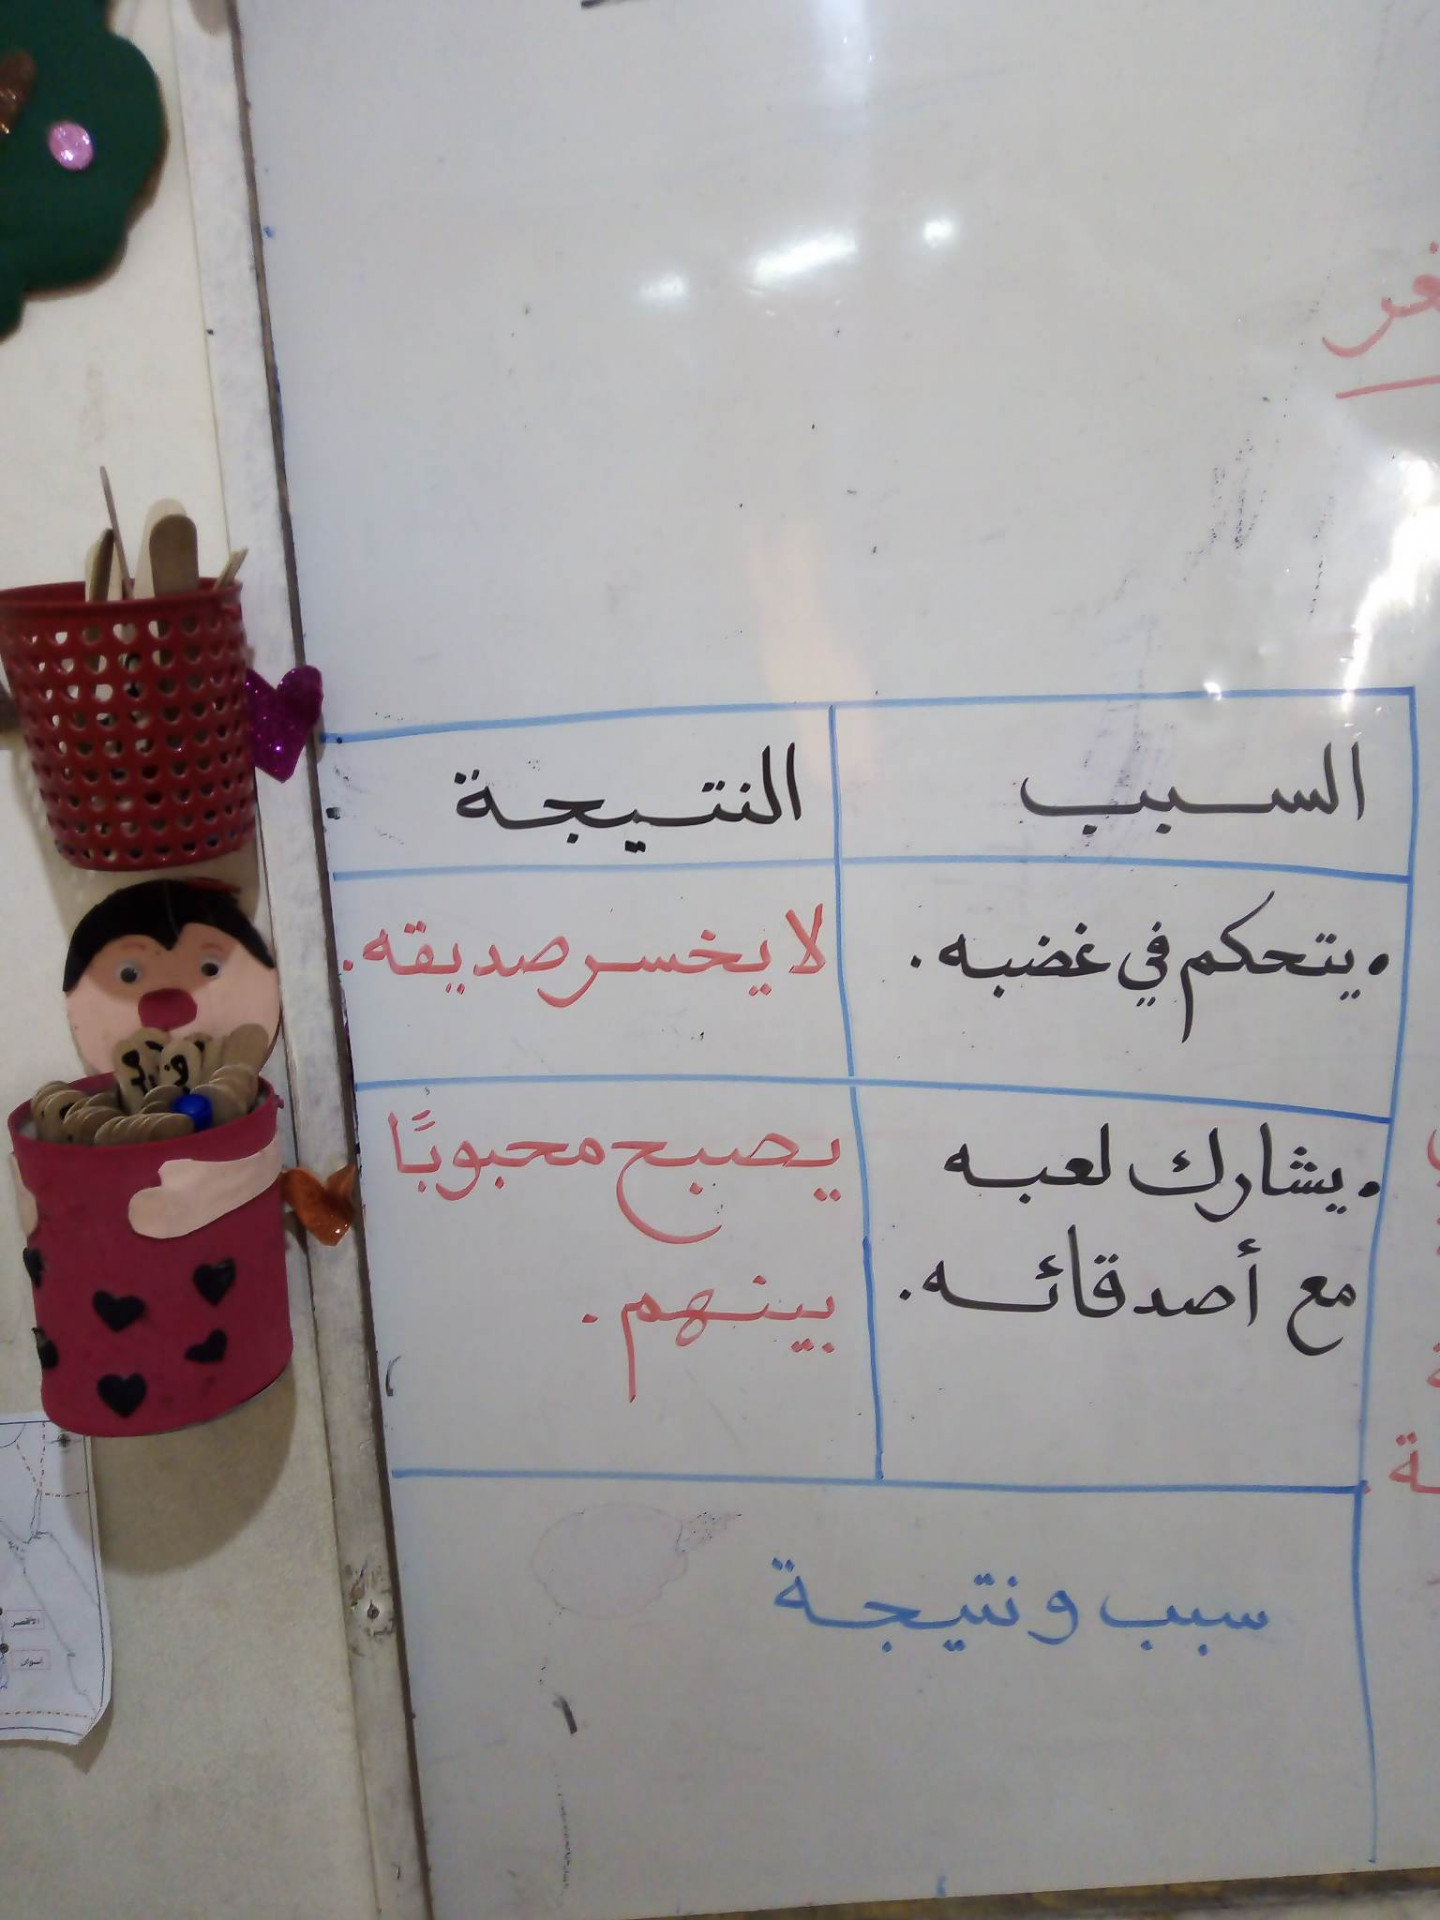 السبب
النتيجة
• يتحكم في غضبه.
لا يخسر صديقه.
• يشارك لعبه
مع أصدقائه.
يصبح محبوبًا
بينهم.
سبب و نتيجة
الأقصر
أسوان